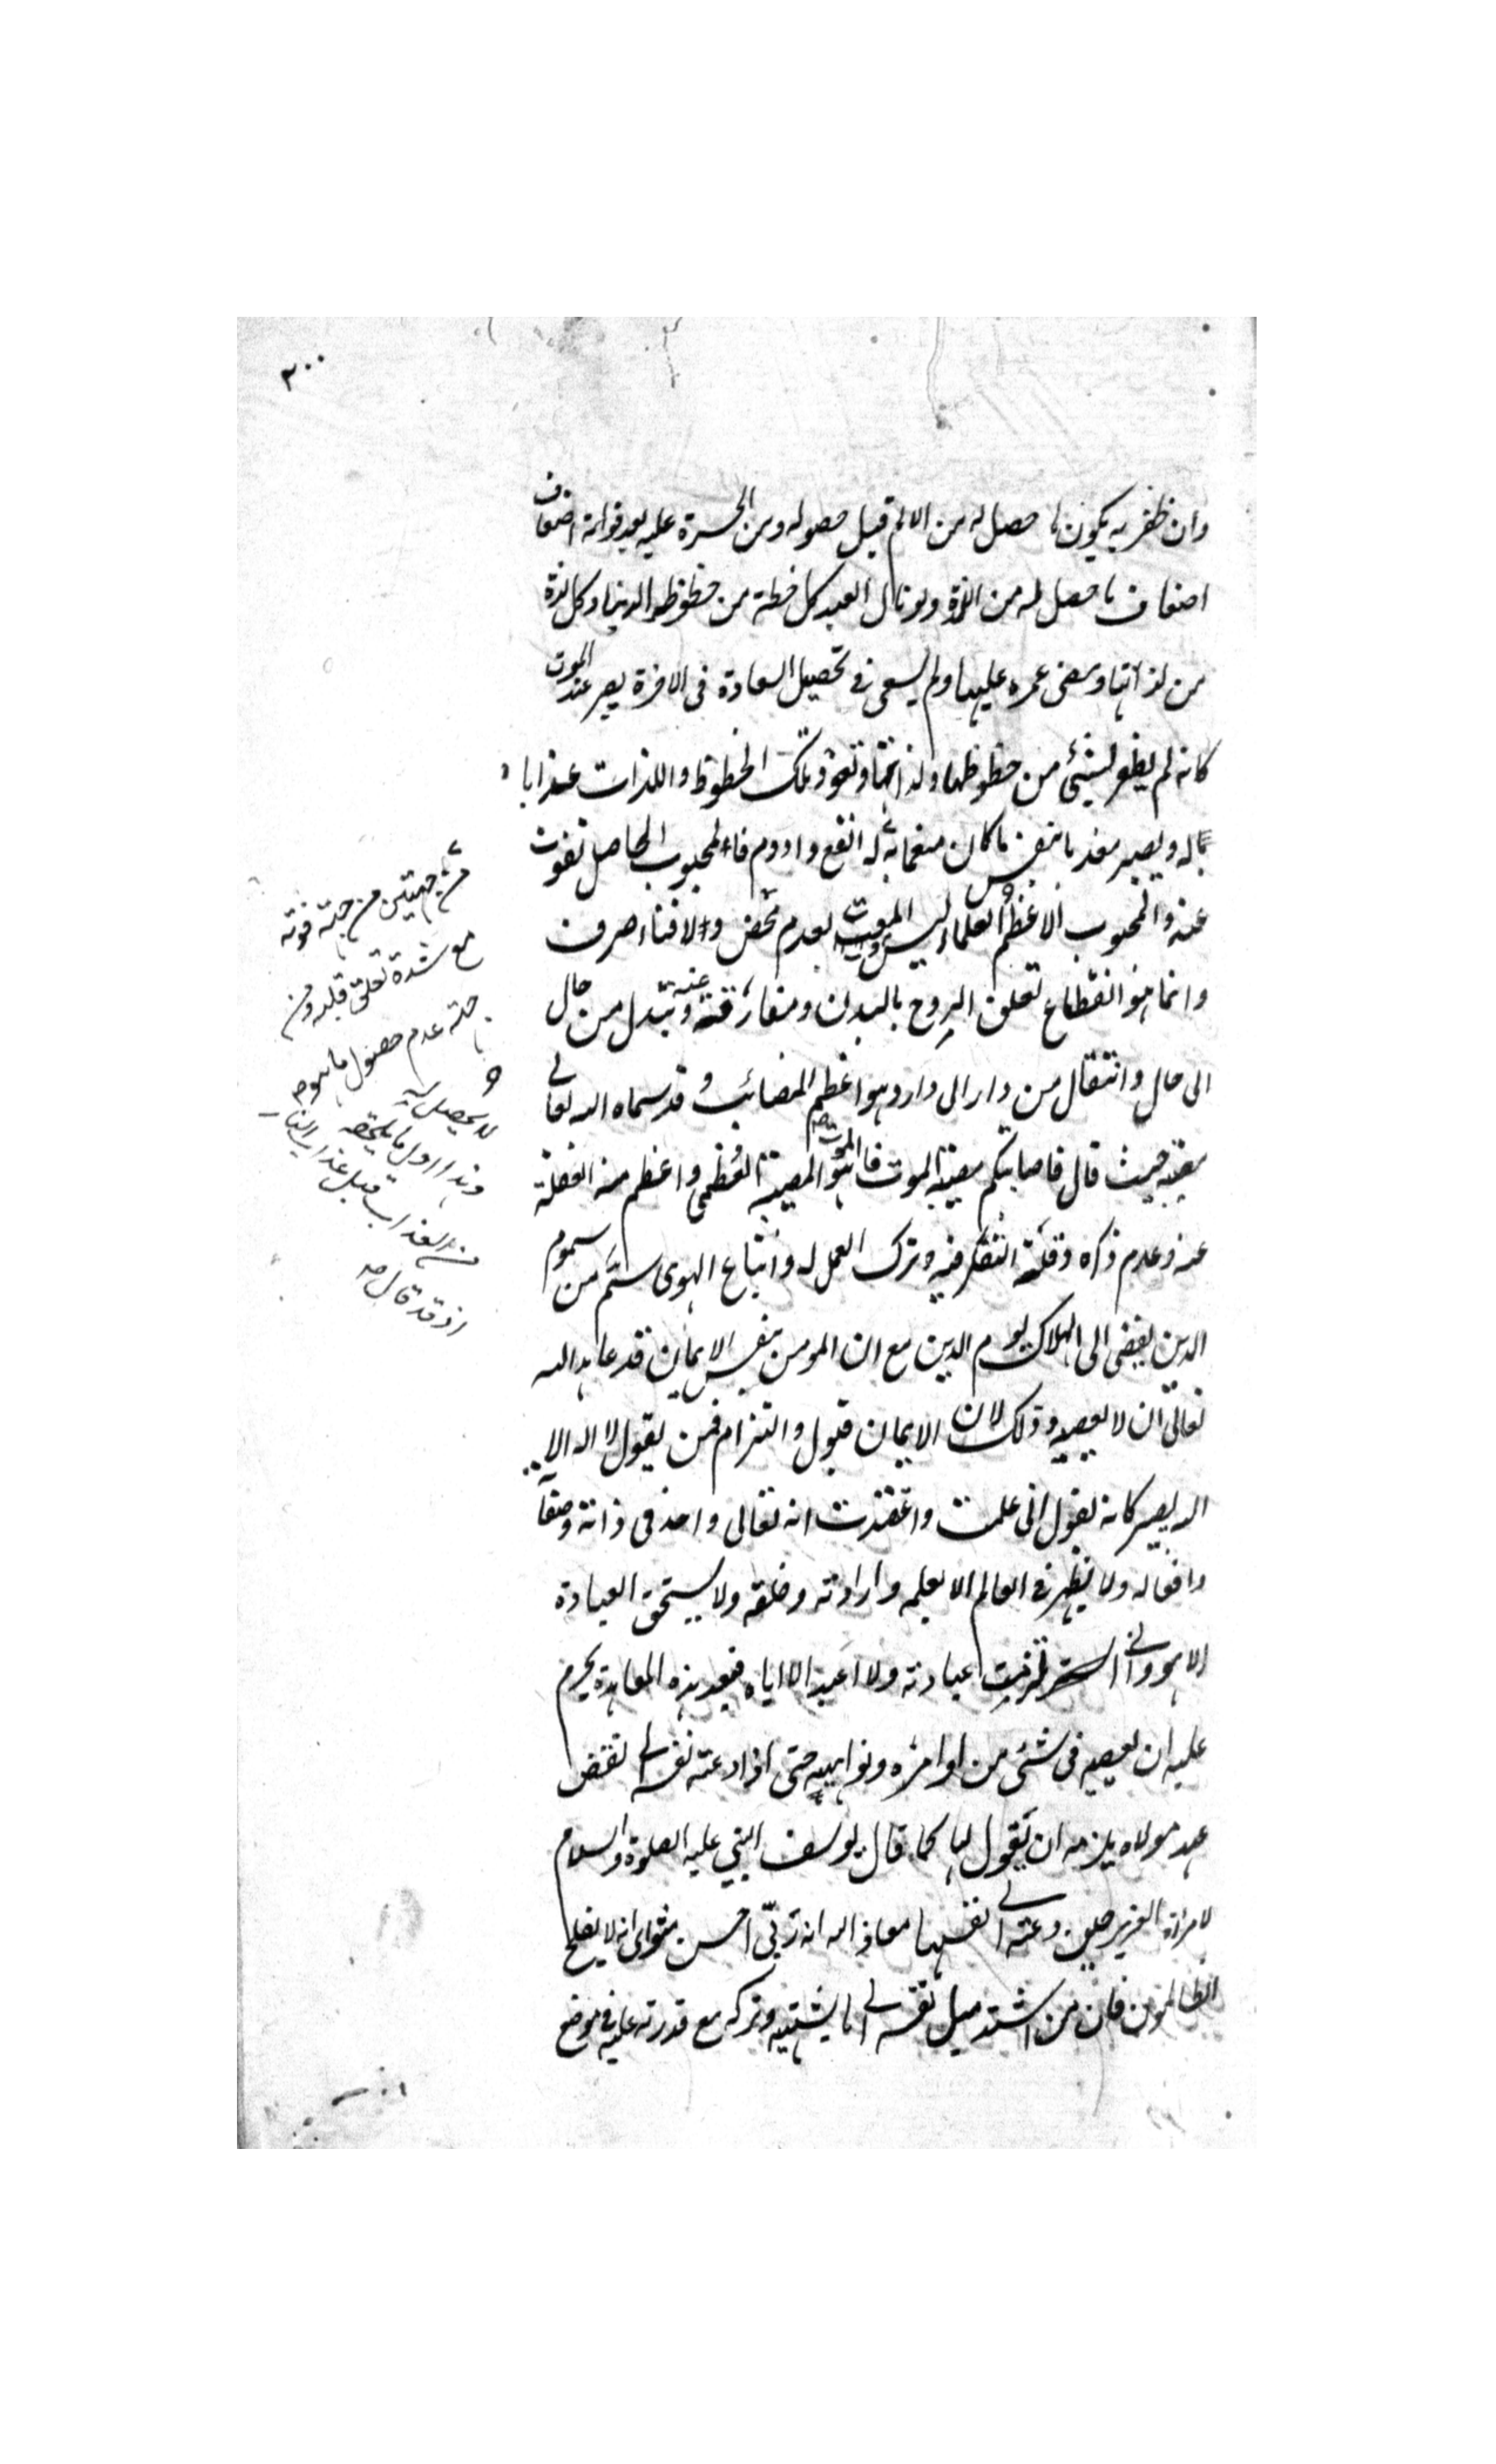 ٢٠٠
وان ظفر به يكون ما حصل له من الالم قبل حصوله ومن الحسرة عليه بعد فواته اضعاف
اضعاف ما حصل له من اللذة ولو نال العبد كل حظة من حظوظ الدنيا وكل لذة
من لذاتها ومضى عمره عليها ولم يسعى في تحصيل السعادة في الاخرة يصير عند الموت
كانه لم يظفر بشيئ من حظوظها ولذاتها وتعود تلك الحظوظ واللذات عذابا
له ويصير معذبا بنفس ما كان منعما به له انفع وادوم فالمحبوب الحاصل تفوت
عنه والمحبوب الاعظم العلماء ليس الموت بعدم محض ولا فناء صرف
وانما هو انقطاع تعلق الروح بالبدن ومفارقته عنه وتبدل من حال
الى حال وانتقال من دار الى دار وهو اعظم المصائب وقد سماه الله تعالى
مصيبة حيث قال فاصابتكم مصيبة الموت فالموت هو المصيبة العظمى واعظم منه الغفلة
عنه وعدم ذكره وقلة التفكر فيه وترك العمل له واتباع الهوى سم من سموم
الدين يفضى الى الهلاك يوم الدين مع ان المومن بنفس الايمان قد عاهد الله
تعالى ان لا يعصيه وذلك لان الايمان قبول والتزام فمن يقول لا اله الا
الله يصير كانه يقول انى علمت واعتقدت انه تعالى واحد فى ذاته وصفاته
وافعاله ولا يظهر في العالم الا بعلمه وارادته وخلقه ولا يستحق العبادة
الا هو وانى التزمت عبادته ولا اعبد الا اياه فبعد هذه المعاهدة يحرم
عليه ان يعصيه فى شئ من اوامره ونواهيه حتى اذا دعته نفسه الى نقض
عهد مولاه يلزمه ان يقول لها كما قال يوسف النبي عليه الصلوة والسلام
لامرأة العزيز حين دعته الى نفسها معاذ الله انه ربي احسن مثواى انه لا يفلح
الظالمون فان من اشتد ميل نفسه الى ما يشتهيه وتركه مع قدرته عليه في موضع
من جهتين من جهة فوته
مع شدة تعلق قلبه ومن
جهة عدم حصول ما هو
لا يحصل له
وهذا اول ما يلحقه
من العذاب قبل عذاب النار
اذ قد قال